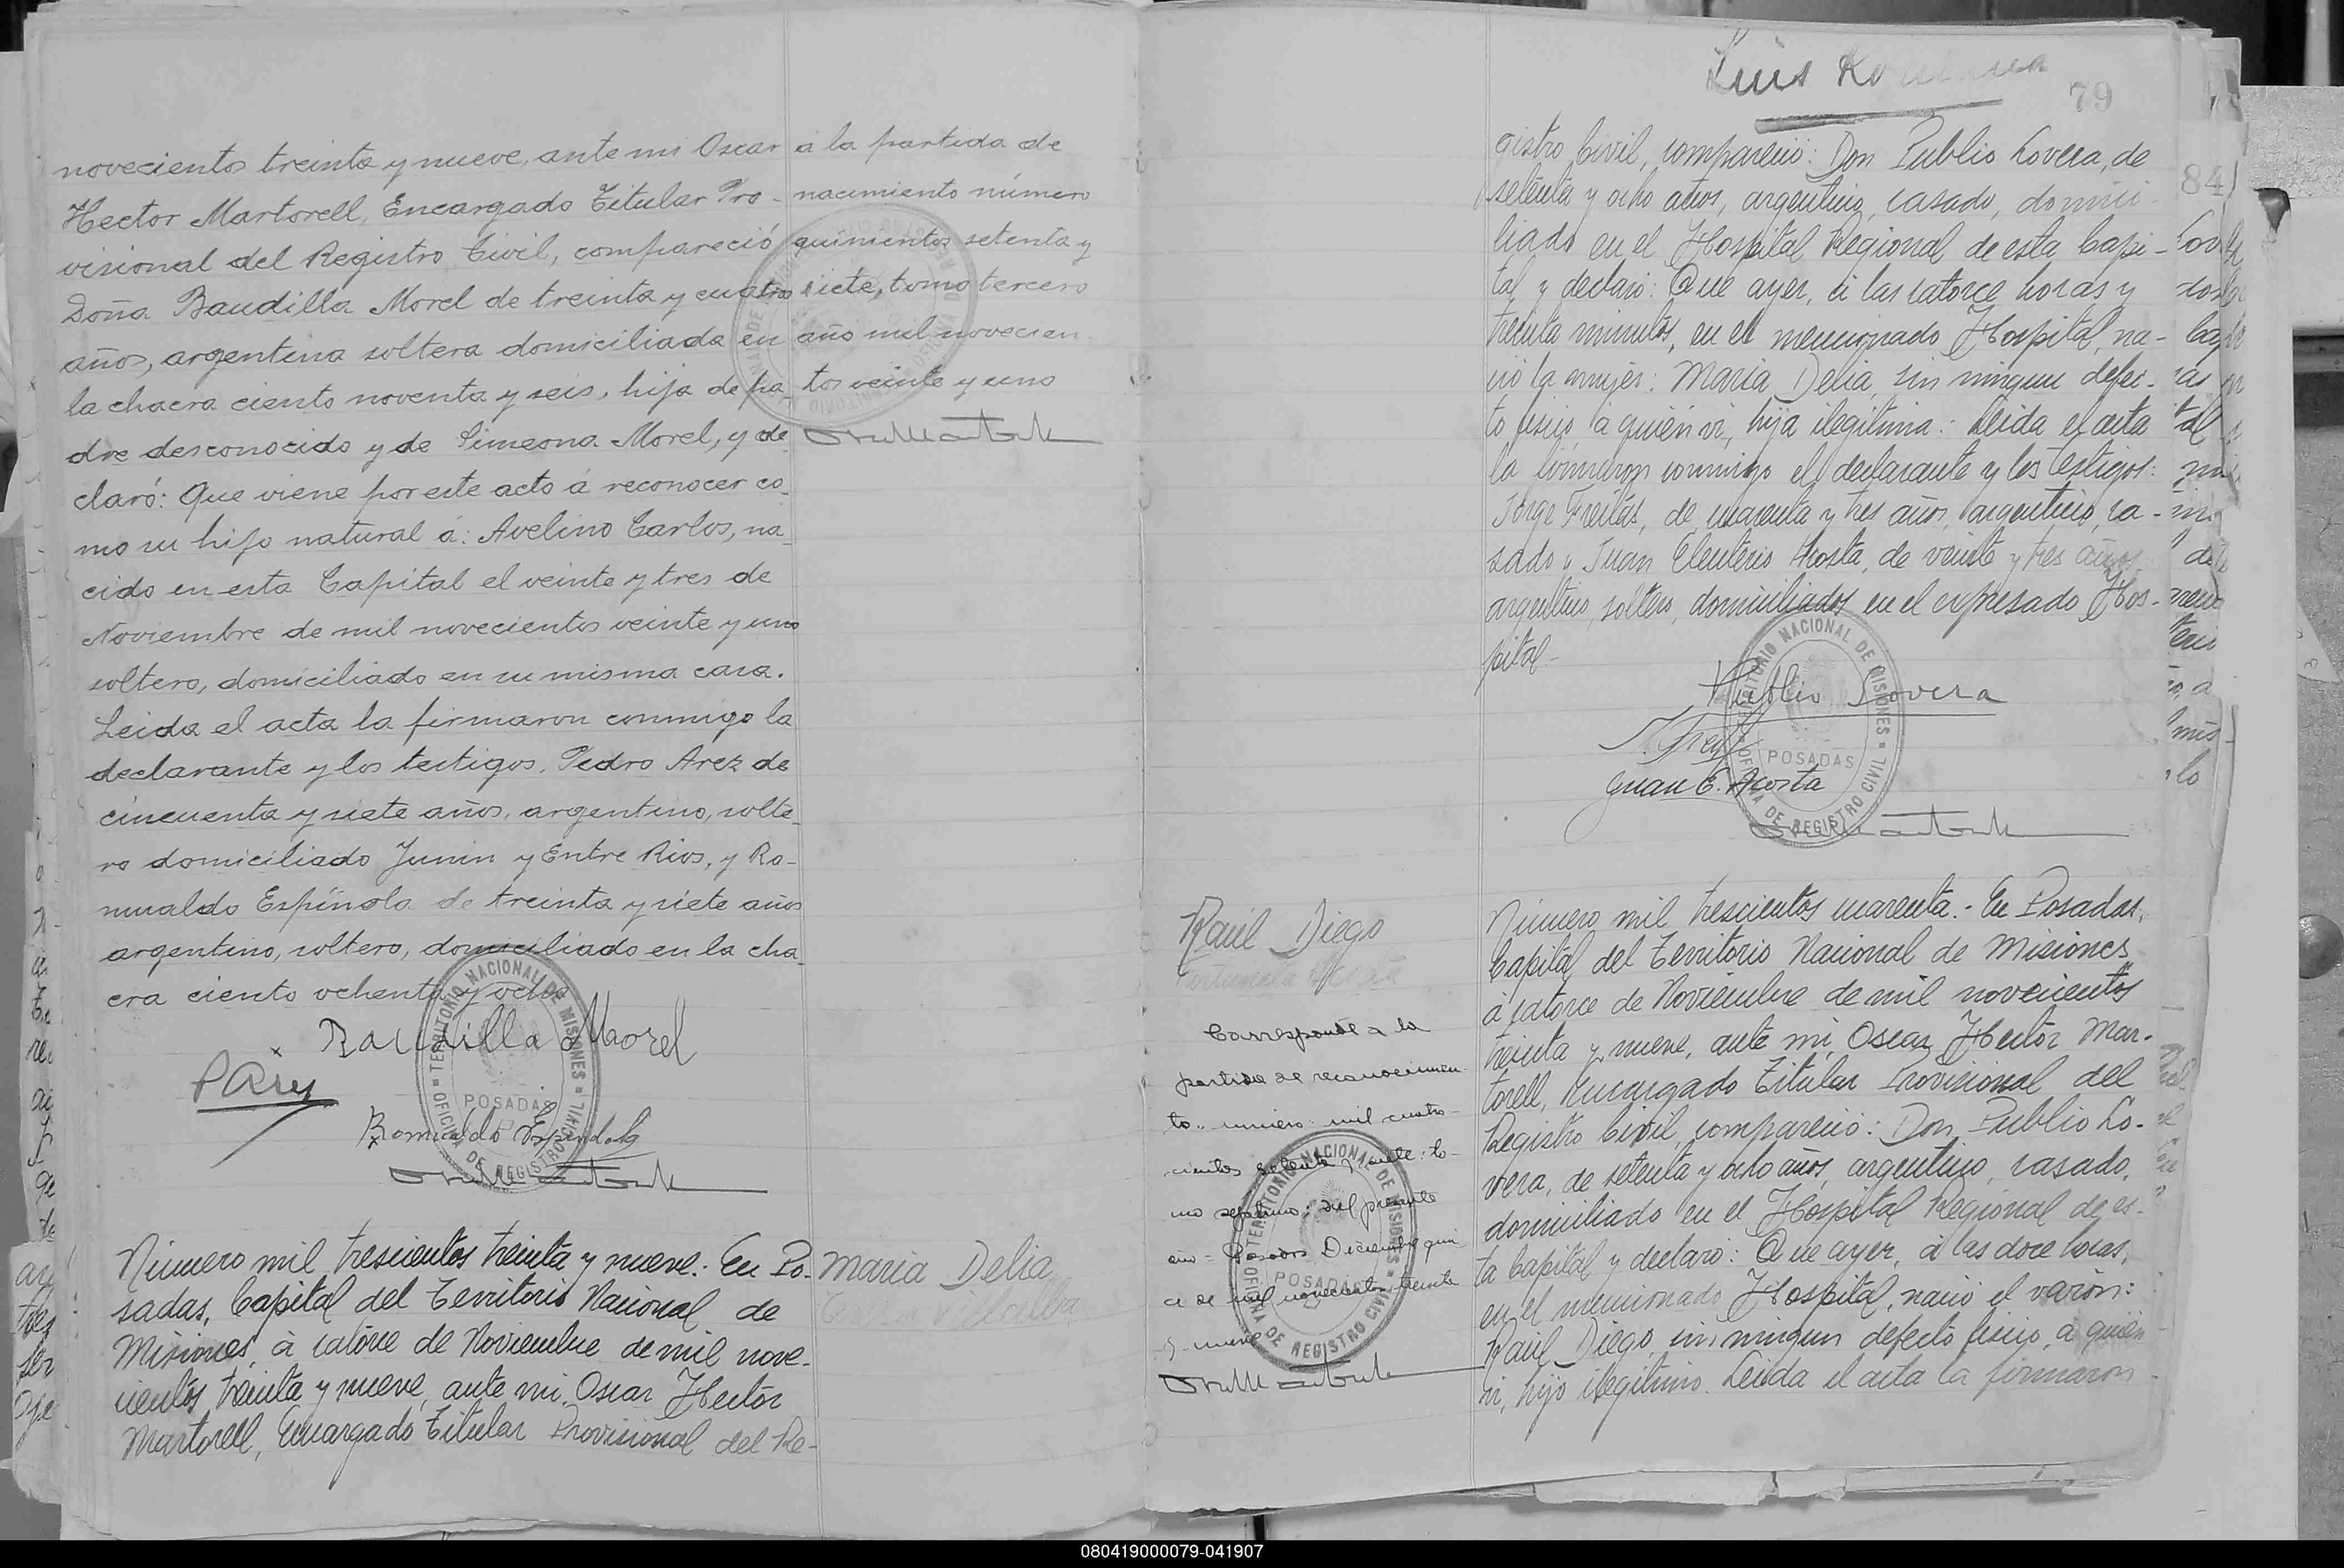 novecientos treinta y nueve, ante mi Oscar
Hector Martorell, Encargado Titular Pro-
visional del Registro Civil, compareció
Doña Baudilla Morel de treinta y cuatro
años, argentina soltera domiciliada en
la chacra ciento noventa y seis, hija de pa-
dre desconocido y de Simeona Morel, y de-
claró: Que viene por este acto á reconocer co-
mo su hijo natural á: Avelino Carlos, na-
cido en esta Capital el veinte y tres de
Noviembre de mil novecientos veinte y uno
soltero, domiciliado en su misma casa.
Leida el acta la firmaron conmigo la
declarante y los testigos, Pedro Arez de
cincuenta y siete años, argentino, solte-
ro domiciliado Junin y Entre Rios, y Ro-
mualdo Espínola de treinta y siete años
argentino, soltero, domiciliado en la cha-
cra ciento ochenta y ocho
Baudilla Morel
PArez
Romualdo Espindola
TERRITORIO NACIONAL DE MISIONES
POSADAS
OFICINA DE REGISTRO CIVIL
Número mil trescientos treinta y nueve.- En Po-
sadas, Capital del Territorio Nacional de
Misiones, á catorce de Noviembre de mil nove-
cientos treinta y nueve, ante mi, Oscar Hector
Martorell, Encargado Titular Provisional del Re-
a la partida de
nacimiento número
quinientos setenta y
siete, tomo tercero
año mil novecien-
tos veinte y uno
Maria Delia
Villalba
Luis
79
84
gistro Civil, compareció: Don Publio Lovera, de
setenta y ocho años, argentino, casado, domici-
liado en el Hospital Regional de esta Capi-
tal y declaró: Que ayer, á las catorce horas y
treinta minutos, en el mencionado Hospital, na-
ció la mujer: Maria Delia, sin ningun defec-
to fisico, a quién vi, hija ilegitima.- Leida el acta
la firmaron conmigo el declarante y los testigos:
Jorge Freitas, de cuarenta y tres años, argentino, ca-
sado y Juan Eleuterio Acosta, de veinte y tres años,
argentino, soltero, domiciliados en el expresado Hos-
pital-
Publio Lovera
Juan E. Acosta
TERRITORIO NACIONAL DE MISIONES
POSADAS
OFICINA DE REGISTRO CIVIL
Raúl Diego
Corresponde a la
partida de reconocimien-
to número mil cuatro-
cientos setenta y siete: to-
mo septimo: del presente
año - Posadas Diciembre quin
ce de mil novecientos treinta
y nueve
TERRITORIO NACIONAL DE MISIONES
POSADAS
OFICINA DE REGISTRO CIVIL
Número mil trescientos cuarenta.- En Posadas,
Capital del Territorio Nacional de Misiones
á catorce de Noviembre de mil novecientos
treinta y nueve, ante mi, Oscar Hector Mar-
torell, Encargado Titular Provisional del
Registro Civil, compareció: Don Publio Lo-
vera, de setenta y ocho años, argentino, casado,
domiciliado en el Hospital Regional de es-
ta Capital y declaró: Que ayer, á las doce horas,
en el mencionado Hospital, nació el varón:
Raúl Diego, sin ningun defecto fisico, á quién
vi, hijo ilegitimo. Leida el acta la firmaron
080419000079-041907